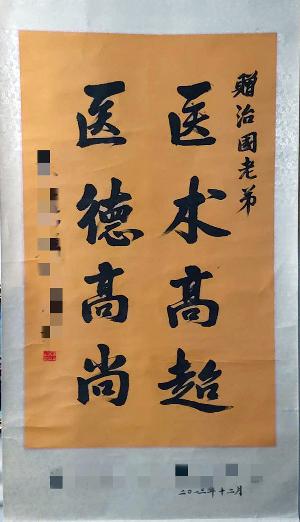 赠治國老弟
医术高超
医德高尚
二〇二三年十二月